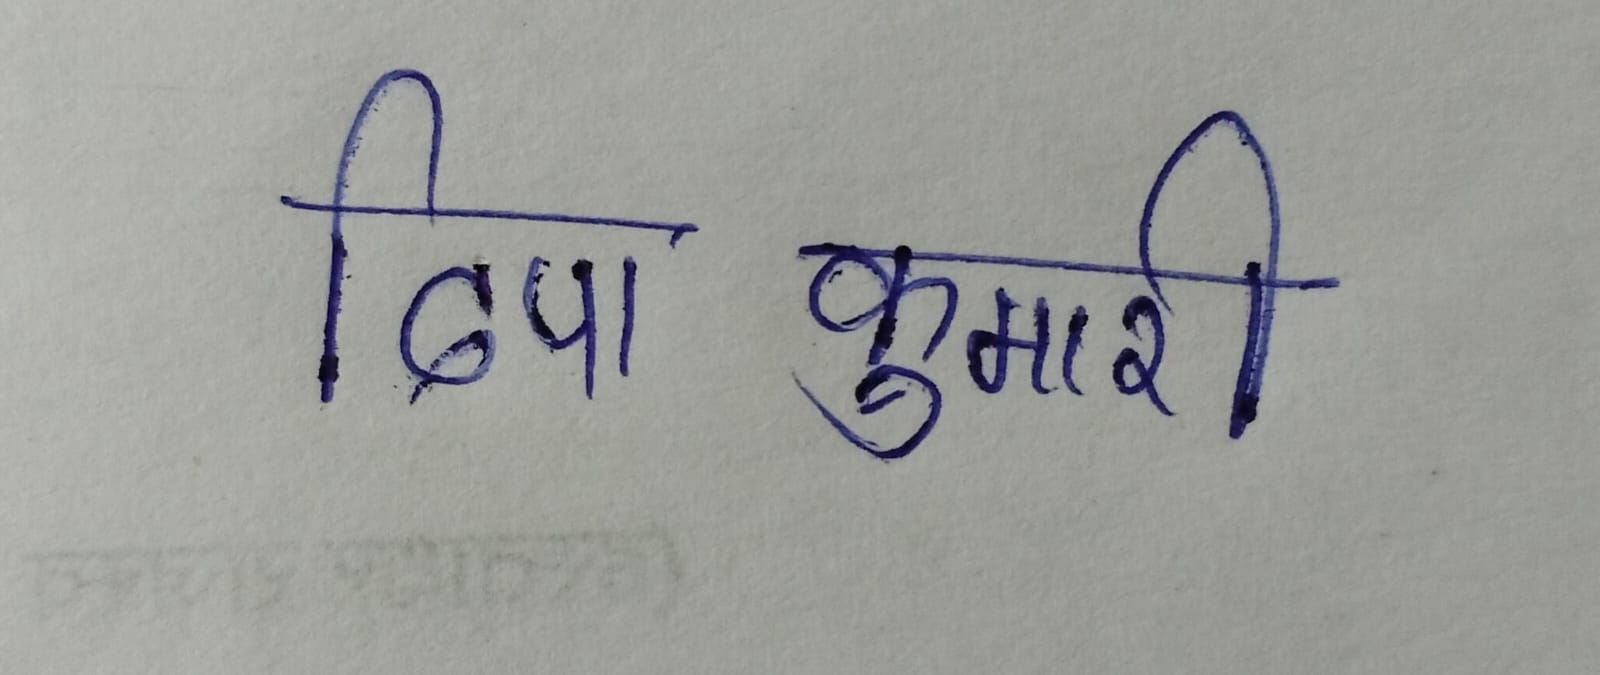 दिपा कुमारी